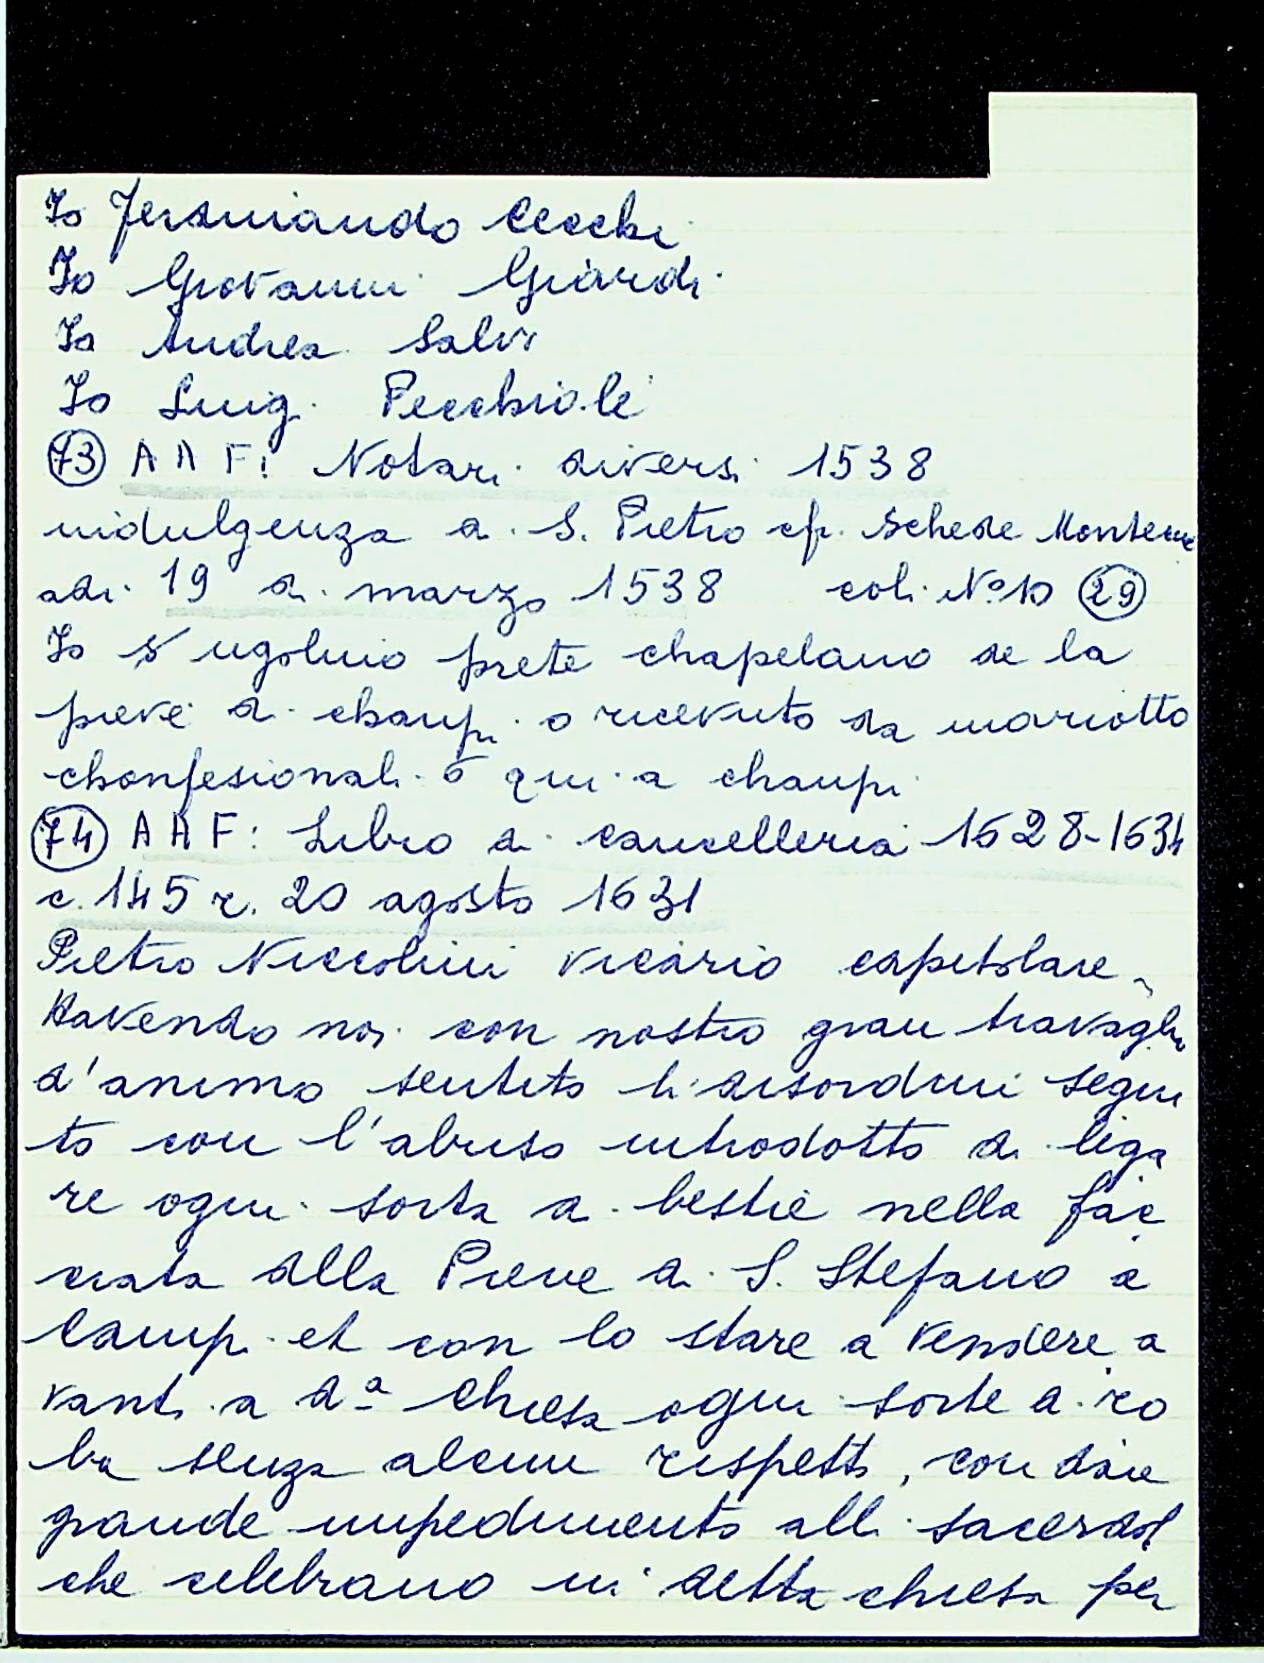 Io Ferdinando Cecchi
Io Giovanni Giardi
Io Andrea Salvi
Io Luigi Pecchioli
73 AAF: Notari diversi 1538
indulgenza a S. Pietro cfr. schede
adi 19 di marzo 1538 col. No 10 29
Io S ugolino prete chapelano de la
pieve di champi o ricevuto da mariotto
chonfesionali 6 qui a champi
74 AAF: Libro di cancelleria 1628-1634
c. 145 r. 20 agosto 1631
Pietro Niccolini vicario capitolare
Havendo noi con nostro gran travaglio
d'animo sentito li disordini segui
to con l'abuso introdotto di liga
re ogni sorta di bestie nella fac
ciata della Pieve di S. Stefano a
Campi et con lo stare a vendere a
vanti a da chiesa ogni sorte di ro
ba senza alcun rispetto, con dare
grande impedimento alli sacerdoti
che celebrano in detta chiesa per